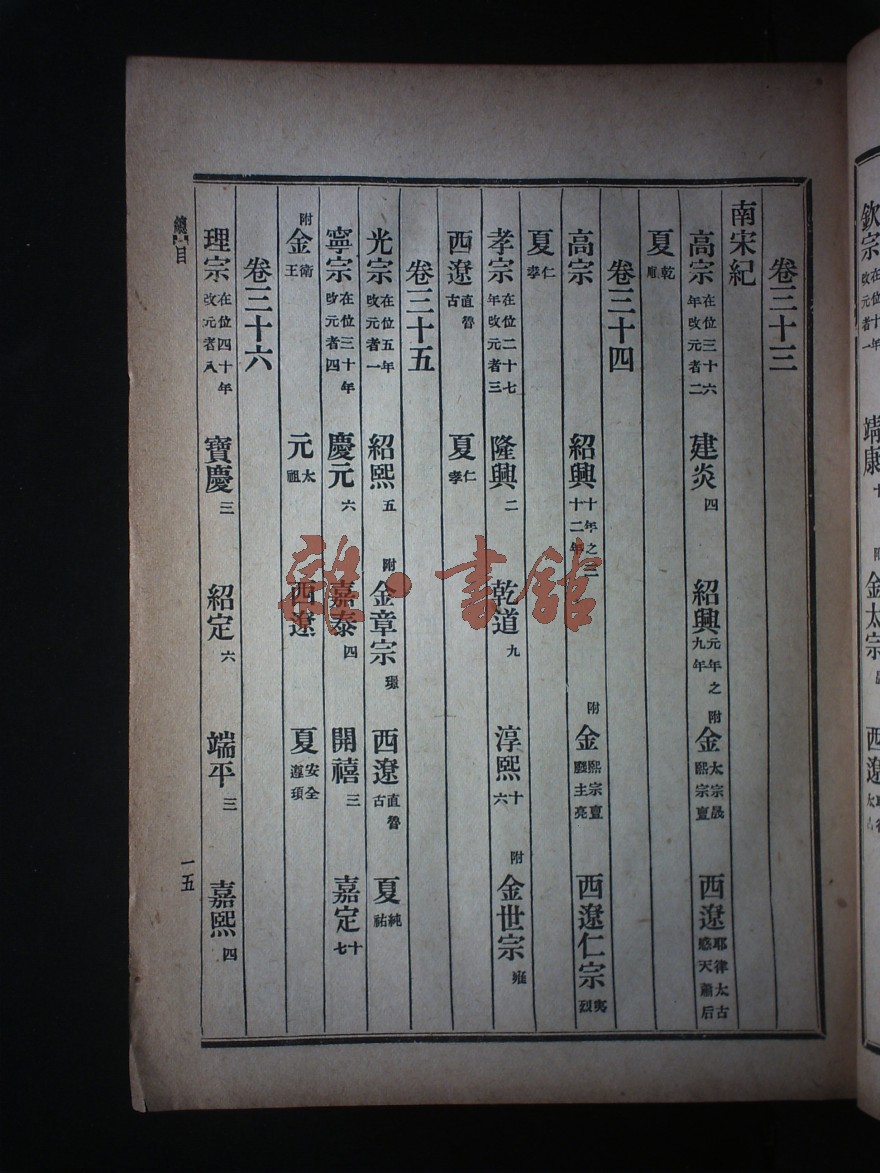 欽宗 改元者一 靖康 附 金太宗 西遼
卷三十三
南宋紀
高宗 在位三十六年改元者二 建炎 四 紹興 元年之九年 附 金 太宗晟熙宗亶 西遼 耶律太古感天蕭后
夏 乾順
卷三十四
高宗 紹興 十年之三十二年 附 金 熙宗亶廢主亮 西遼仁宗 夷烈
夏 仁孝
孝宗 在位二十七年改元者三 隆興 二 乾道 九 淳熙 十六 附 金世宗 雍
西遼 直魯古 夏 仁孝
卷三十五
光宗 在位五年改元者一 紹熙 五 附 金章宗 璟 西遼 直魯古 夏 純祐
寧宗 在位三十年改元者四 慶元 六 嘉泰 四 開禧 三 嘉定 十七
附 金 衛王 元 太祖 西遼 夏 安全遵頊
卷三十六
理宗 在位四十年改元者八 寶慶 三 紹定 六 端平 三 嘉熙 四
總目
一五
書館